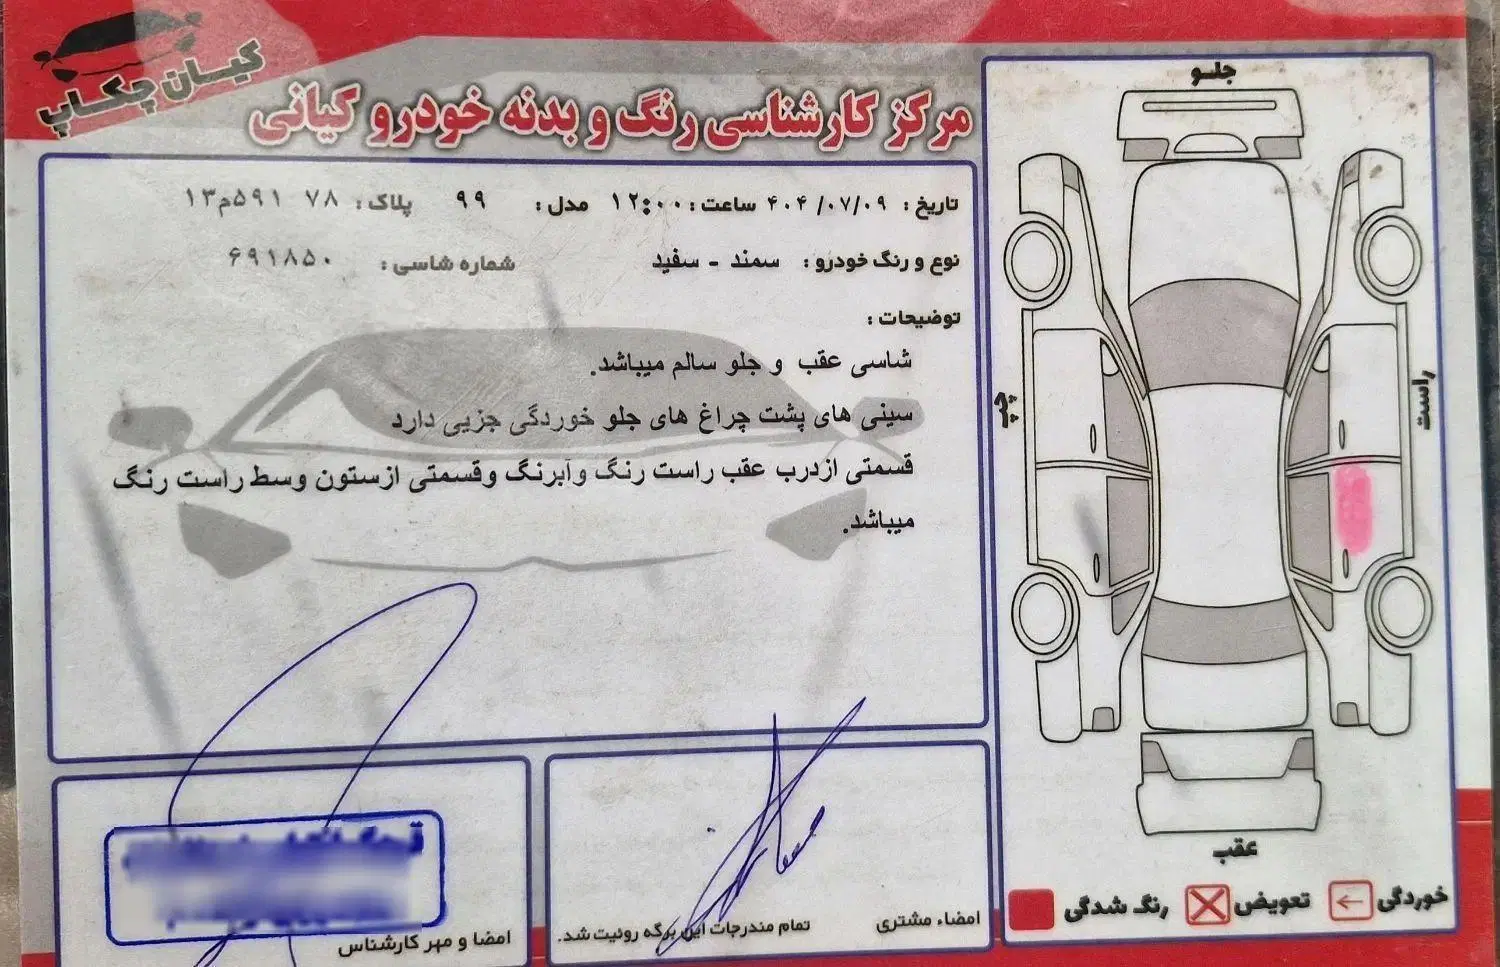 کیان چکاپ
مرکز کارشناسی رنگ و بدنه خودرو کیانی
تاریخ : ۴۰۴/۰۷/۰۹ ساعت : ۱۲:۰۰ مدل : ۹۹ پلاک : ۷۸ ۵۹۱م۱۳
نوع و رنگ خودرو : سمند - سفید شماره شاسی : ۶۹۱۸۵۰
توضیحات :
شاسی عقب و جلو سالم میباشد.
سینی های پشت چراغ های جلو خوردگی جزیی دارد
قسمتی ازدرب عقب راست رنگ وآبرنگ وقسمتی ازستون وسط راست رنگ
میباشد.
جلو
راست
چپ
عقب
خوردگی تعویض رنگ شدگی
امضاء مشتری
تمام مندرجات این برگه روئیت شد.
امضا و مهر کارشناس